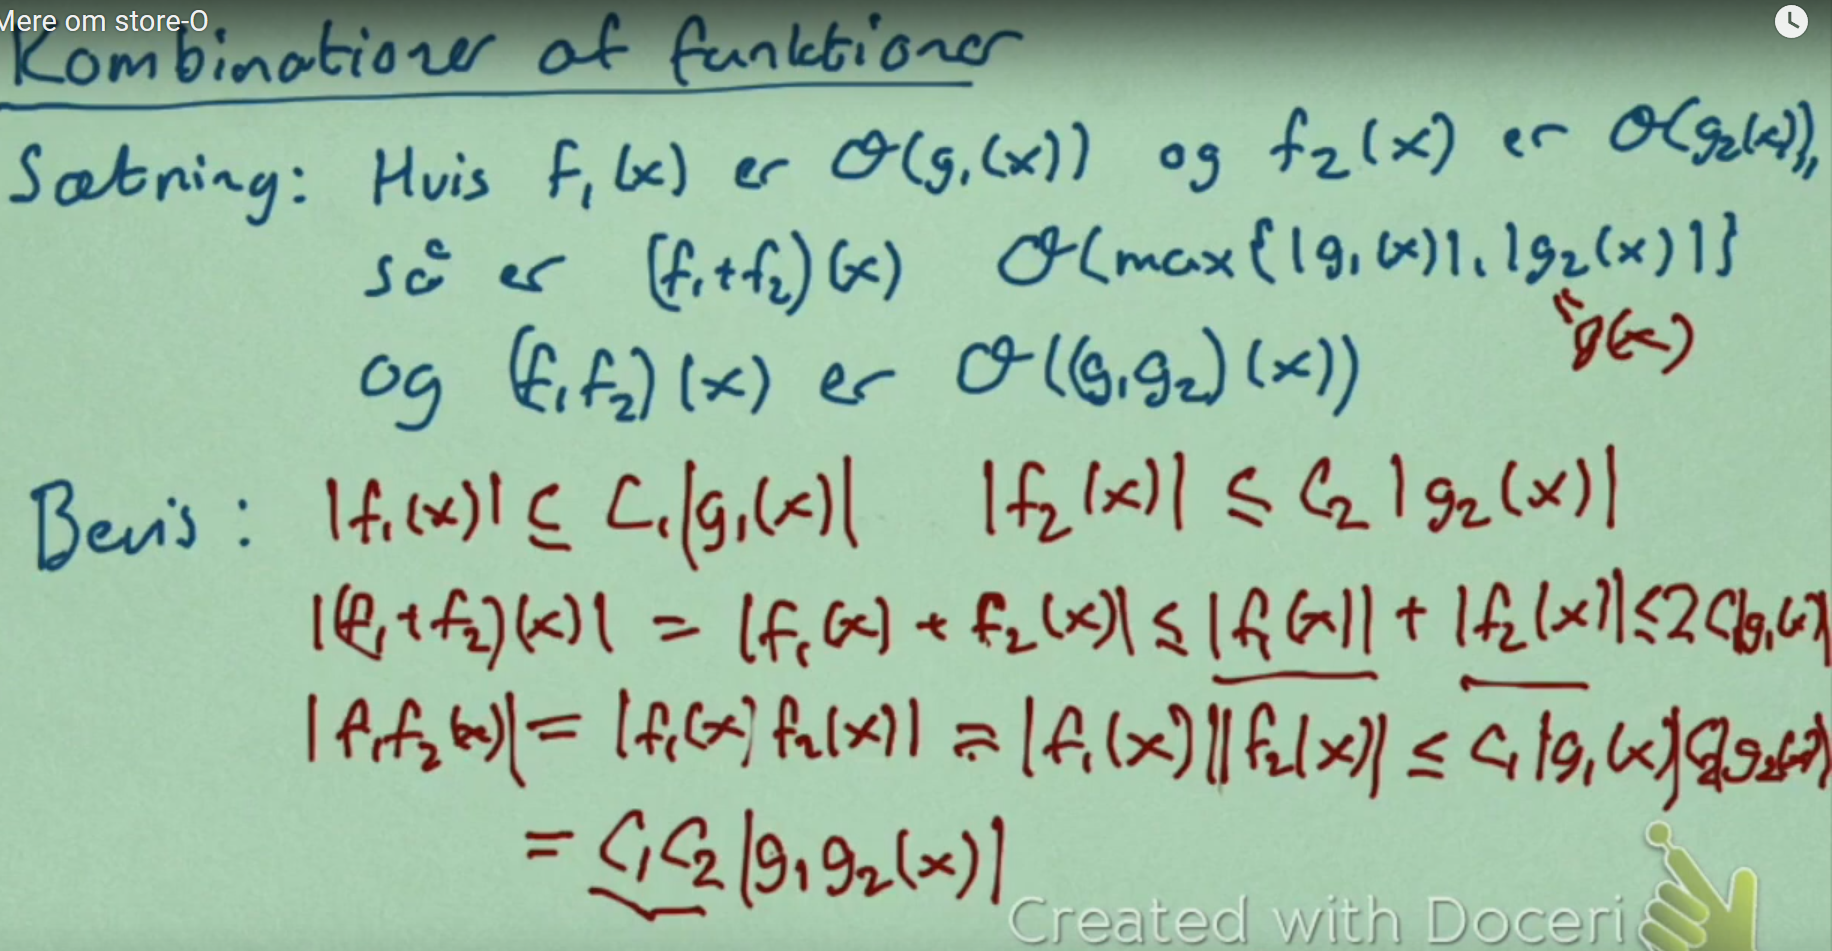 Mere om store-O
Kombinationer af funktioner
Sætning: Hvis f₁(x) er O(g₁(x)) og f₂(x) er O(g₂(x)),
så er (f₁+f₂)(x) O(max{|g₁(x)|,|g₂(x)|}
"g(x)
og (f₁f₂)(x) er O((g₁g₂)(x))
Bevis: |f₁(x)| ≤ C₁|g₁(x)| |f₂(x)| ≤ C₂|g₂(x)|
|(f₁+f₂)(x)| = |f₁(x) + f₂(x)| ≤ |f₁(x)| + |f₂(x)| ≤ 2C|g₁(x)|
|f₁f₂(x)| = |f₁(x) f₂(x)| = |f₁(x)||f₂(x)| ≤ C₁|g₁(x)|C₂|g₂(x)|
= C₁C₂|g₁g₂(x)|
Created with Doceri